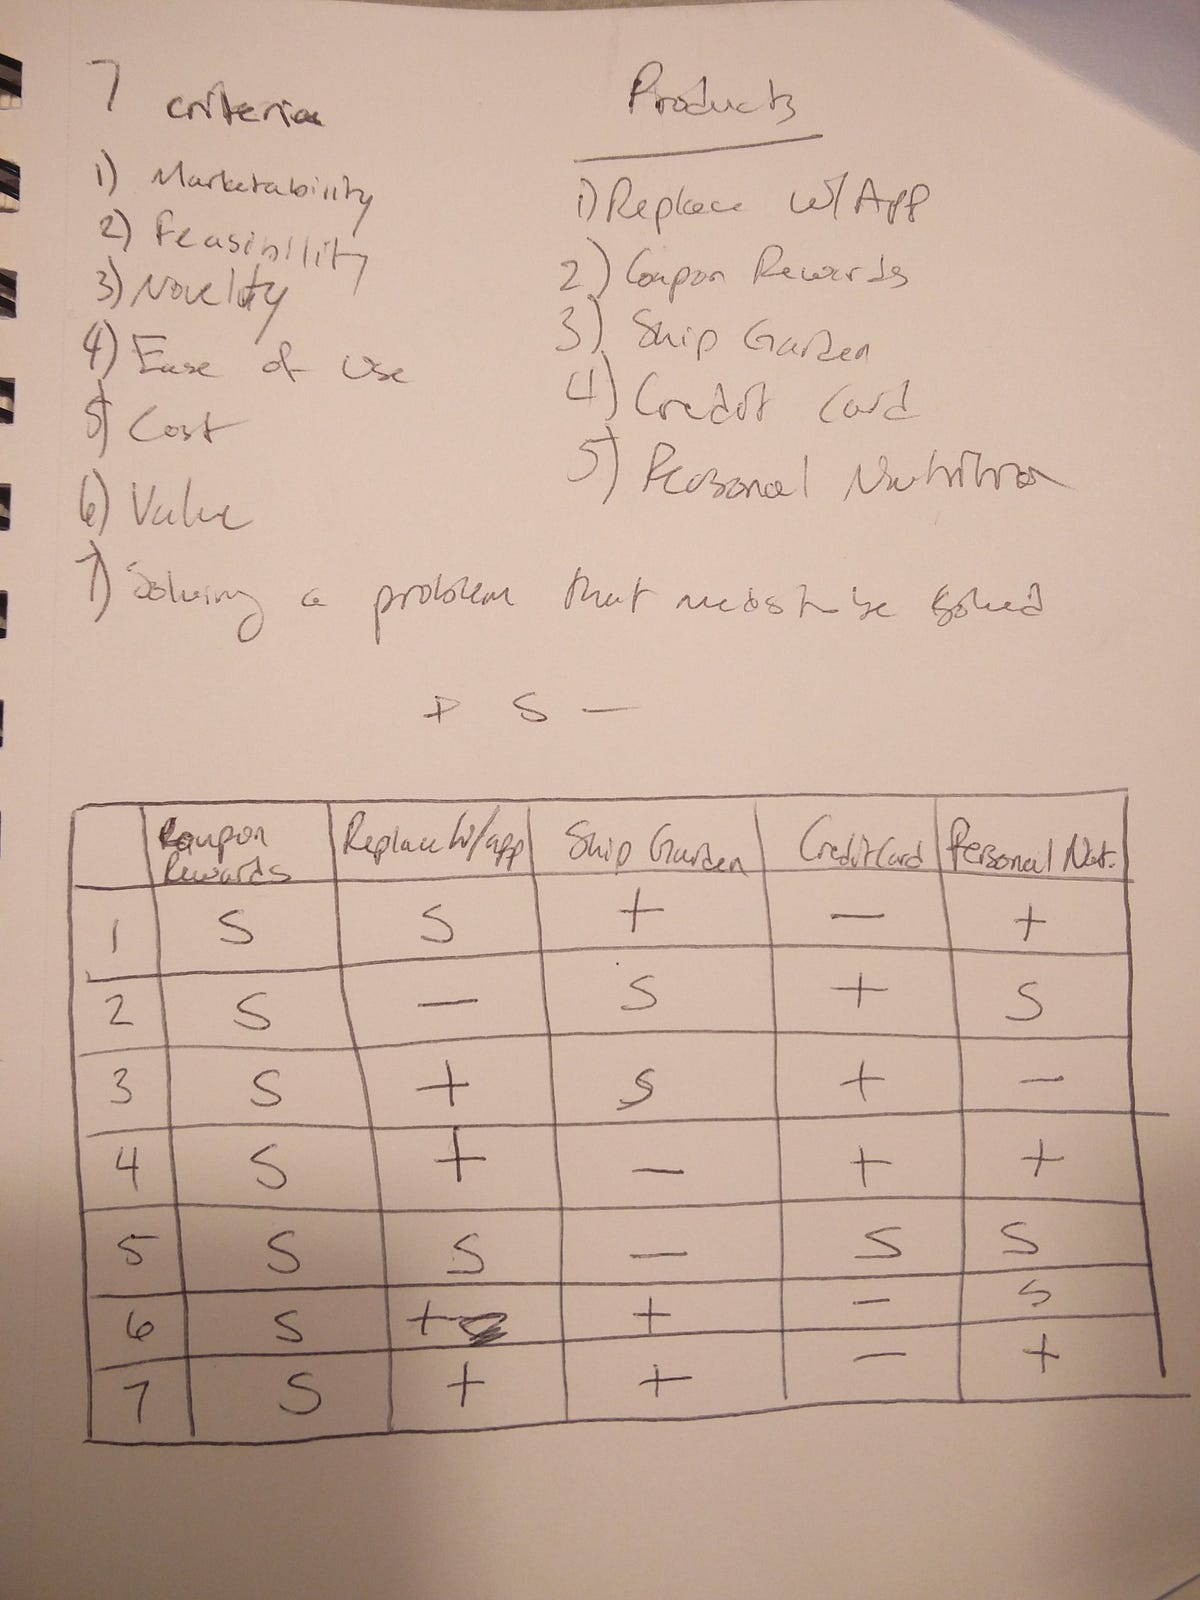 7 criteria
1) Marketability
2) Feasibility
3) Novelty
4) Ease of Use
5) Cost
6) Value
7) Solving a problem that needs to be solved
Products
1) Replace w/ App
2) Coupon Rewards
3) Ship Garden
4) Credit Card
5) Personal Nutrition
+ S -
Coupon Rewards Replace W/app Ship Garden Credit Card Personal Nut.
1 S S + - +
2 S - S + S
3 S + S + -
4 S + - + +
5 S S - S S
6 S + + - S
7 S + + - +